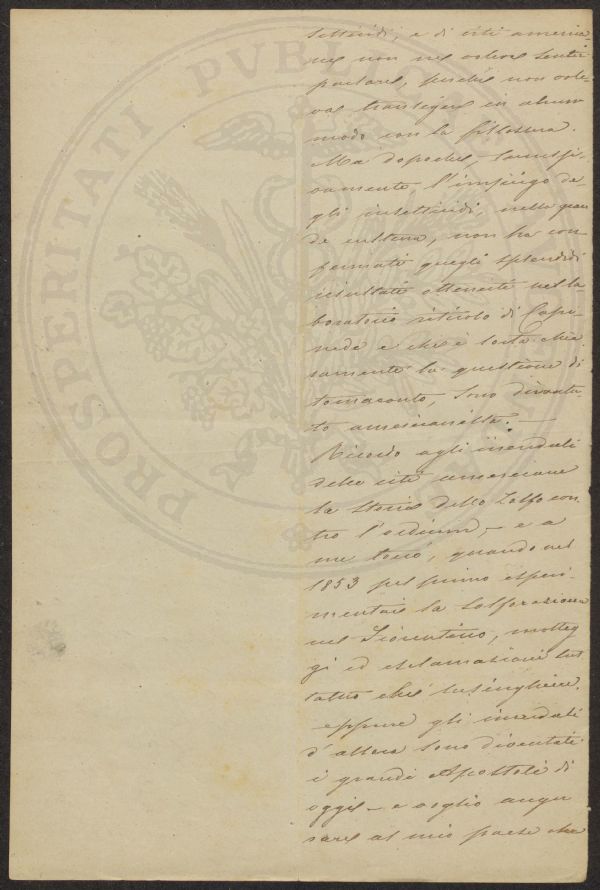 PROSPERITATI PVBLICAE
setticidi, e di viti america
ne non ne volevo sentir
parlare, perchè non vole
va transigere in alcun
modo con la fillossera.
Ma dopochè, successi
vamente l'impiego de
gli insetticidi, nella gran
de cultura, non ha con
fermati quegli splendidi
risultati ottenuti nel la
boratorio viticolo di
e che è sorta chia
ramente la questione di
tornaconto, sono diventa
to americanista. —
Ricordo agli increduli
delle viti americane
la storia dello Zolfo con
tro l'oidium, — e a
me toccò, quando nel
1853 pel primo esperi
mentai la solforazione
nel Fiorentino, motteg
gi ed esclamazioni tut
t'altro che lusinghiere.
eppure gli increduli
d'allora sono diventati
i grandi Apostoli di
oggi — e voglio augu
rare al mio paese che